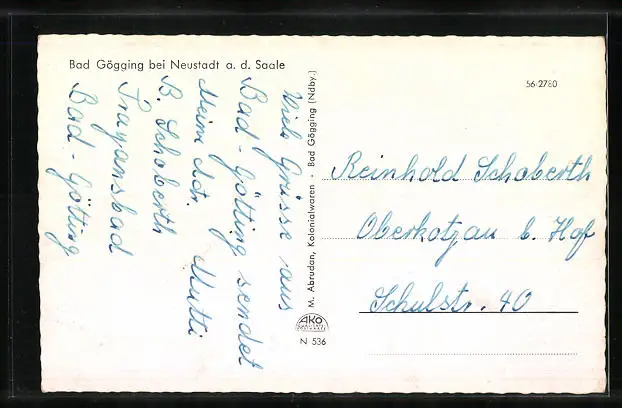 Bad Gögging bei Neustadt a. d. Saale
56-2780
Viele Grüsse aus
Bad-Götting sendet
Mutti
Meine Adr.
B. Schoberth
Trayansbad
Bad-Götting
M. Abrudan, Kolonialwaren - Bad Gögging (Ndby.)
AKO
N 536
Reinhold Schoberth
Oberkotzau b. Hof
Schulstr. 40